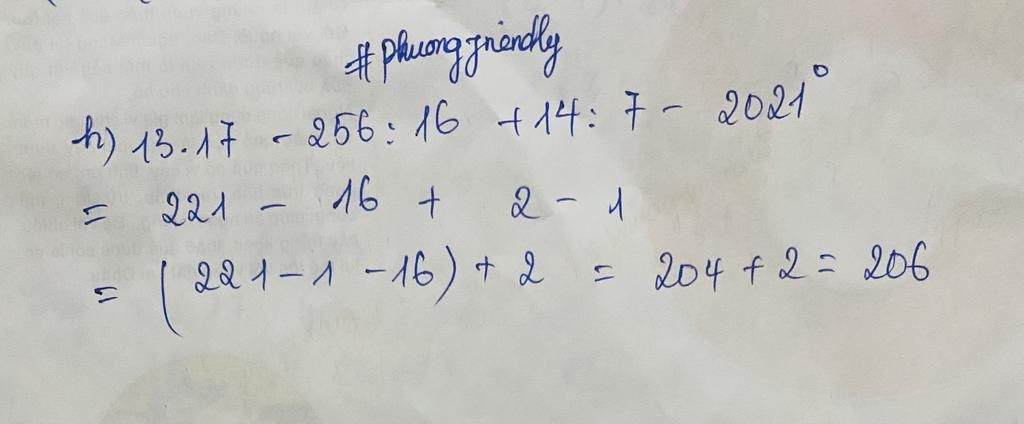 #phuongfriendly
h) 13.17 - 256 : 16 + 14 : 7 - 2021⁰
= 221 - 16 + 2 - 1
= (221 - 1 - 16) + 2 = 204 + 2 = 206